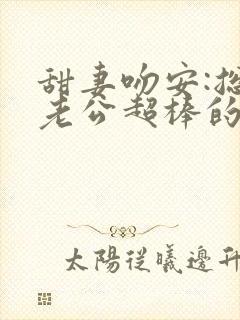 甜妻吻安:总
老公超棒的
太陽從曦邊升